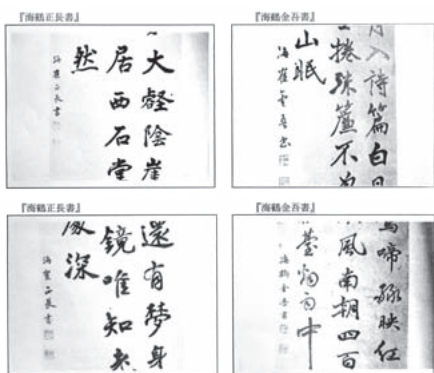 『海鶴正長書』
大壑陰崖
居西石堂
然
海隺正長書
『海鶴金吾書』
入詩篇白日
捲珠簾不
山眠
海隺金吾書
『海鶴正長書』
還有夢身
鏡唯知
深
海隺正長書
『海鶴金吾書』
啼緑映紅
風南朝四百
臺烟雨中
海鶴金吾書